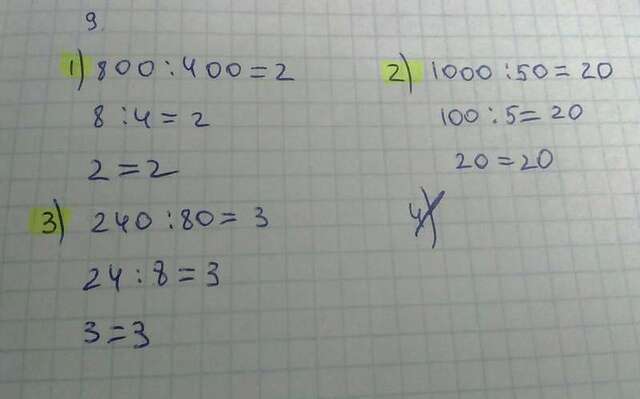 9.
1) 800 : 400 = 2
8 : 4 = 2
2 = 2
2) 1000 : 50 = 20
100 : 5 = 20
20 = 20
3) 240 : 80 = 3
24 : 8 = 3
3 = 3
4)